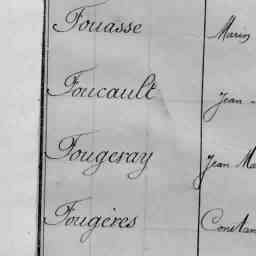 Fouasse Marin
Foucault Jean -
Fougeray Jean Ma
Fougères Constan